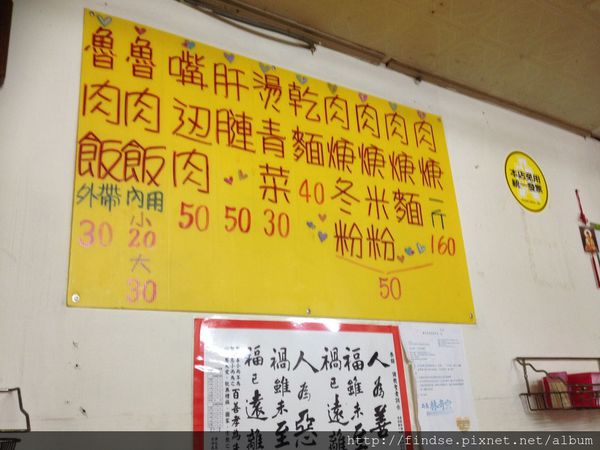 魯肉飯 外帶 30
魯肉飯 內用 小 20 大 30
嘴边肉 50
肝腱 50
燙青菜 30
乾麵 40
肉焿冬粉
肉焿米粉
肉焿麵
50
肉焿一斤 160
本店免用
統一發票
人為善
福雖未至
禍已遠離
人為惡
禍雖未至
福已遠離
百善孝為先
http://findse.pixnet.net/album